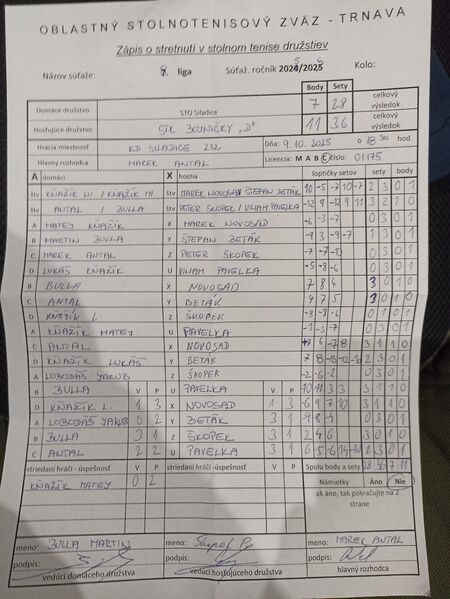 OBLASTNÝ STOLNOTENISOVÝ ZVÄZ - TRNAVA
Zápis o stretnutí v stolnom tenise družstiev
Názov súťaže: liga Súťaž. ročník Kolo:
Body Sety
Domáce družstvo STO Siladice 7 28 celkový výsledok
Hosťujúce družstvo STK BOJNIČKY "D" 11 36 celkový výsledok
Hracia miestnosť KD SILADICE 232 Dňa: 9.10.2025 o 18 30 hod.
Hlavný rozhodca MAREK ANTAL Licencia: M A B C číslo: 01175
A domáci X hostia loptičky setov sety body
štv KŇAŽÍK LU. / KŇAŽÍK MA. štv MAREK NOVOSAD ŠTEFAN BEŤÁK 10 -5 -7 10 -7 2 3 0 1
štv ANTAL / BULLA štv PETER ŠKOPEK / VILIAM PAVELKA -12 9 -12 9 11 3 2 1 0
A MATEJ KŇAŽÍK X MAREK NOVOSAD -6 -3 -7 0 3 0 1
B MARTIN BULLA Y ŠTEFAN BEŤÁK 1 3 0 1
C MAREK ANTAL Z PETER ŠKOPEK -7 -7 -10 0 3 0 1
D LUKÁŠ KŇAŽÍK U VILIAM PAVELKA -5 -8 -6 0 3 0 1
B BULLA X NOVOSAD 7 8 4 3 0 1 0
C ANTAL Y BEŤÁK 4 7 5 3 0 1 0
D KŇAŽÍK L. Z ŠKOPEK -8 -8 -6 0 3 0 1
A KŇAŽÍK MATEJ U PAVELKA -1 -3 -7 0 3 0 1
C ANTAL X NOVOSAD 6 -7 8 3 1 1 0
D KŇAŽÍK LUKÁŠ Y BEŤÁK 2 3 0 1
A LOBODÁŠ JAKUB Z ŠKOPEK -2 -6 -2 0 3 0 1
B BULLA V P U PAVELKA V P 3 1 1 0
D KŇAŽÍK L. 1 3 X NOVOSAD 1 3 -6 9 7 10 3 1 1 0
A LOBODÁŠ JAKUB 0 2 Y BEŤÁK 3 1 -9 -8 -4 0 3 0 1
B BULLA 3 1 Z ŠKOPEK 3 1 2 4 6 3 0 1 0
C ANTAL 2 2 U PAVELKA 3 1 6 -5 -6 14 -10 2 3 0 1
striedaní hráči - úspešnosť V P striedaní hráči - úspešnosť V P Spolu body a sety 28 36 7 11
KŇAŽÍK MATEJ 0 2 Námietky Áno Nie
ak áno, tak pokračujte na 2. strane
meno: BULLA MARTIN meno: meno: MAREK ANTAL
podpis: podpis: podpis:
vedúci domáceho družstva vedúci hosťujúceho družstva hlavný rozhodca